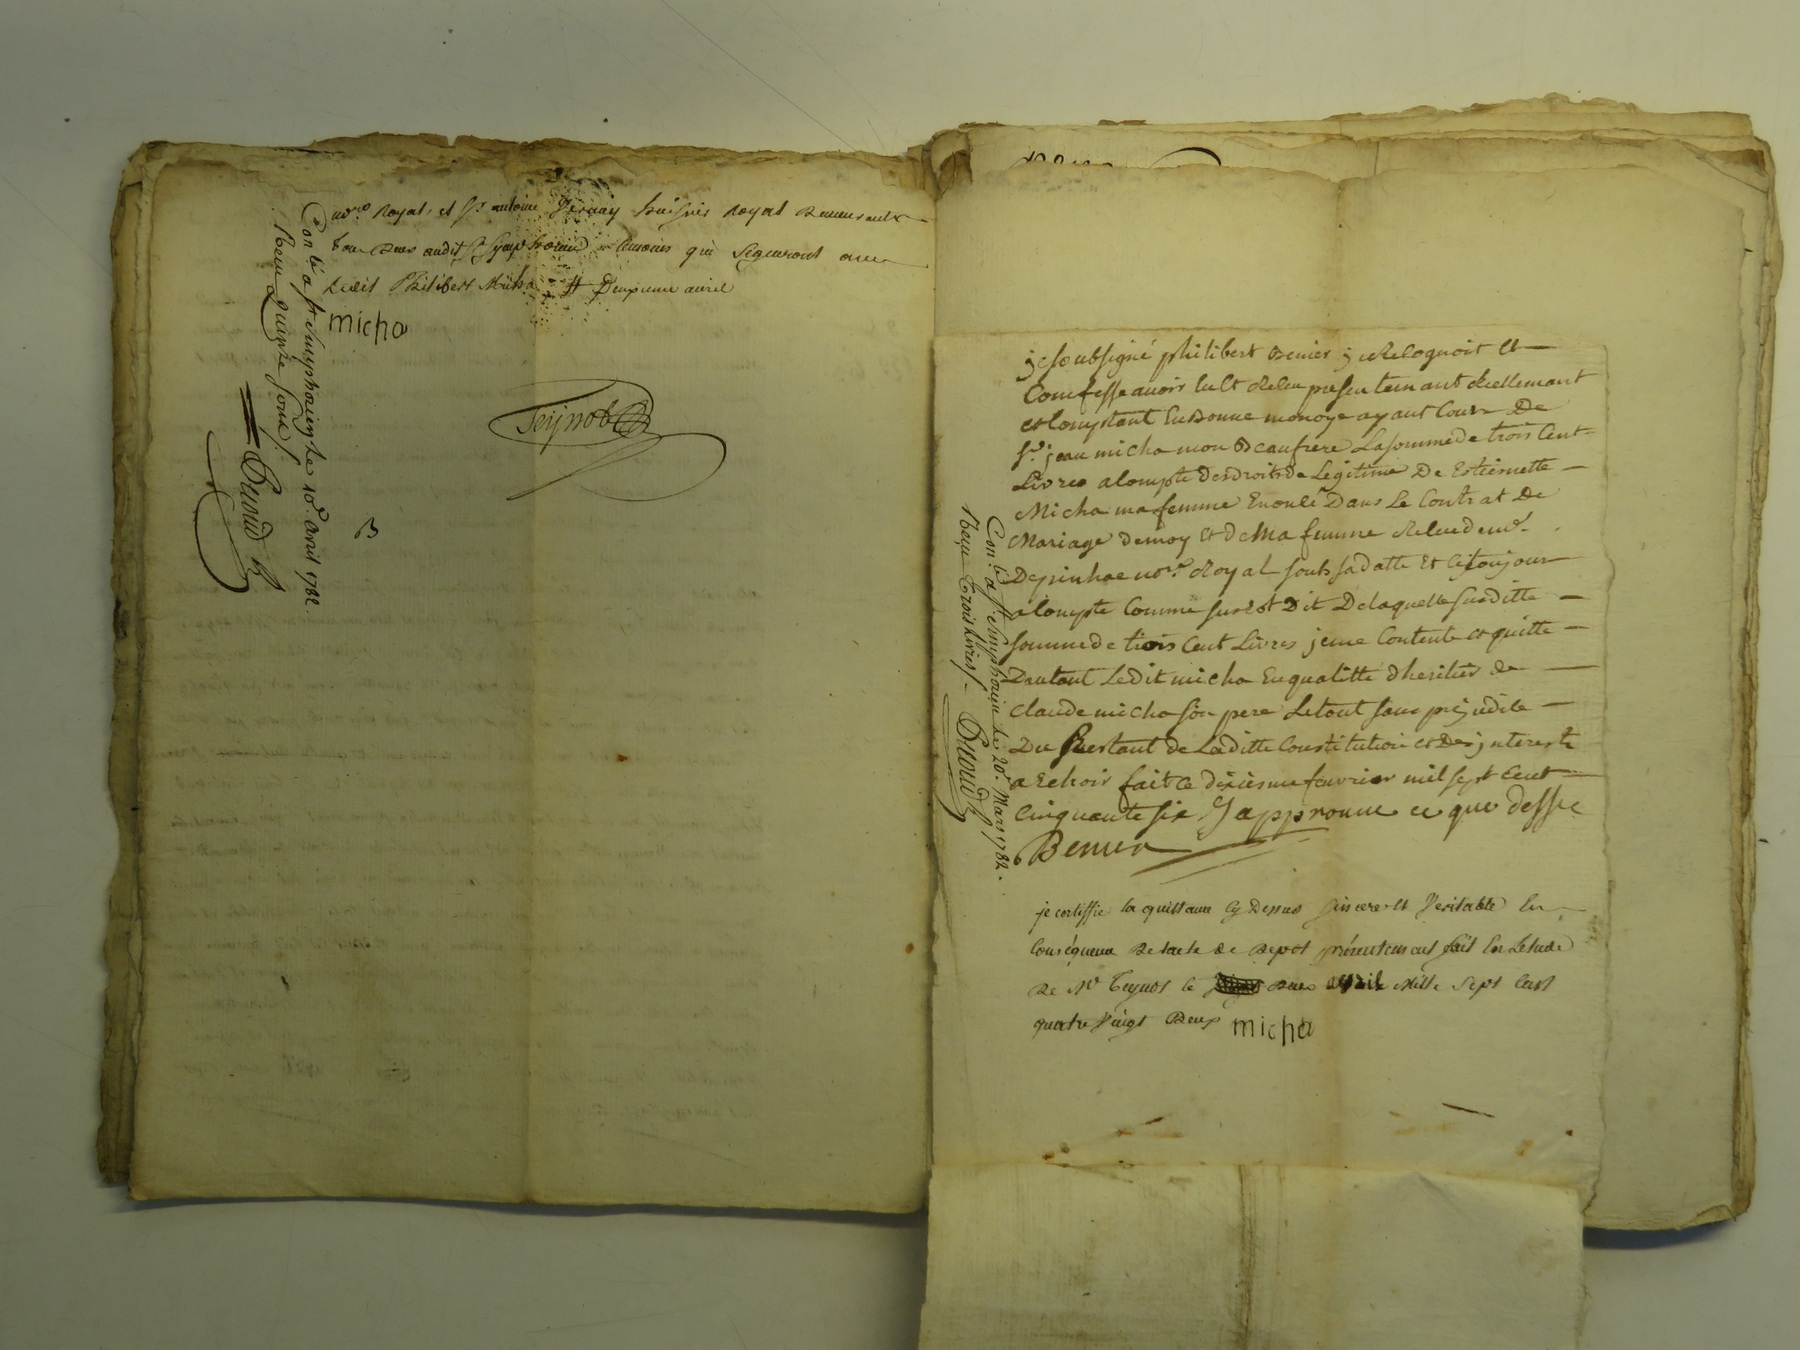 nore Royal, et Sr antoine Vernay huissier Royal Demeurants
tous Deux audit St Symphorien temoins qui signeront avec
Ledit Philibert Micha # Deuxieme avril
micha
Teynot
B
Con.lé a St Simphorien le 10e. avril 1782.
Reçu Quinze sous
je soubsigné philibert Benier je Relognoit et
Comfesse avoir lult Releu presentemant Reellemant
et Comptant En Bonne monoye ayant Cour De
Sr. jean micha mon Beaufrere La somme de trois Cent
Livres a Compte Des droits de Legitime De Estiennette
Micha ma femme Enonlé Dans Le Contrat De
Mariage de moy Et De Ma femme Releu de me.
Depinhac nore. Royal soubs sa datte Et Cy toujour
a Compte Comme sus Est Dit De laquelle susditte
somme de trois Cent Livres je me Contente et quitte
Dautant Ledit micha En qualitté dheritier de
Claude micha son pere Le tout sans prejudile
Du Restant de Laditte Constitution et Des jnterests
a Echoir fait Ce dixiesme fevrier mil sept Cent
Cinquante six J approuve ce que dessus
Benier
Con.lé a St. Simphorien le 20e. Mars 1782.
Reçu trois Livres
je certiffie la quittance Cy Dessus sincere et Veritable En
Conséquence De lacte de Depot présentement fait En Letude
De Me Teynot le Deux avril Mille Sept Cent
quatre Vingt Deux micha